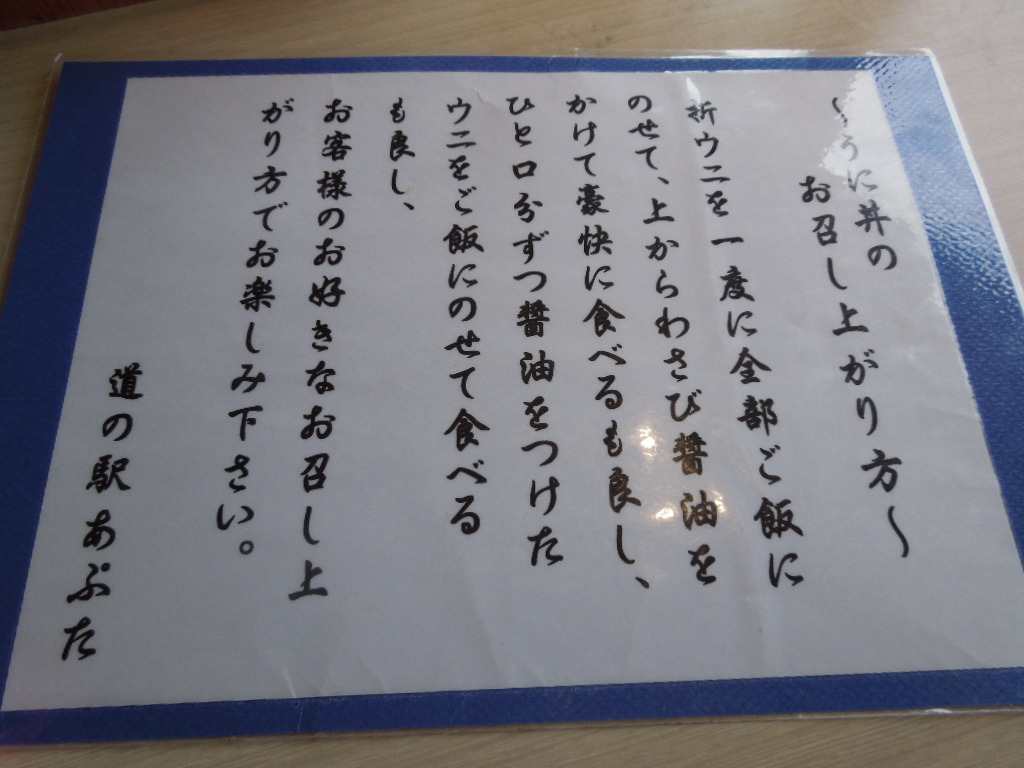 ～うに丼の
お召し上がり方～
折ウニを一度に全部ご飯に
のせて、上からわさび醤油を
かけて豪快に食べるも良し、
ひと口分ずつ醤油をつけた
ウニをご飯にのせて食べる
も良し、
お客様のお好きなお召し上
がり方でお楽しみ下さい。
道の駅あぷた